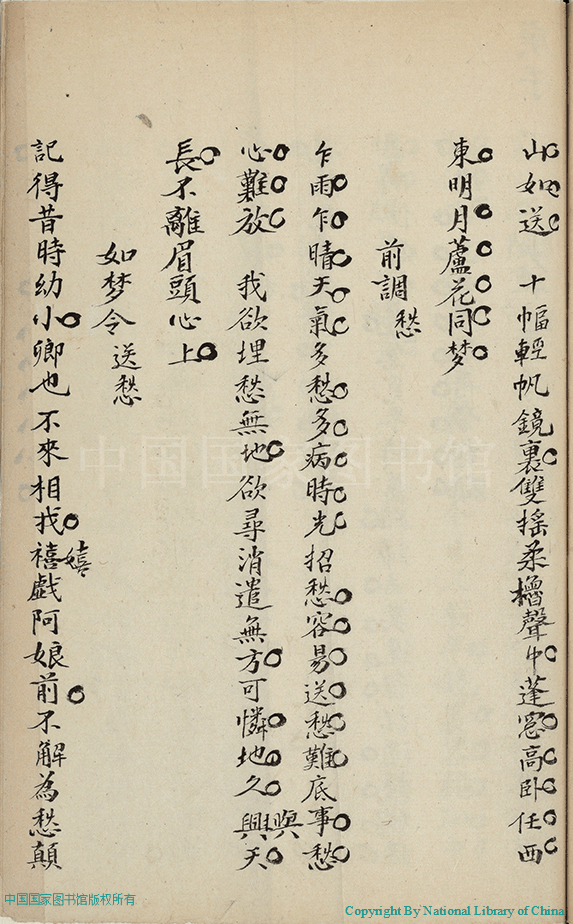 山如送　十幅輕帆鏡裏雙搖柔櫓聲中蓬窓高卧任西
東明月蘆花同梦
前調　愁
乍雨乍晴天氣多愁多病時光招愁容易送愁難底事愁
心難放　我欲埋愁無地欲尋消遣無方可憐地久興與天
長不離眉頭心上
如梦令　送愁
記得昔時幼小卿也不來相找禧嬉戲阿娘前不解為愁顛
中国国家图书馆
中国国家图书馆版权所有
Copyright By National Library of China